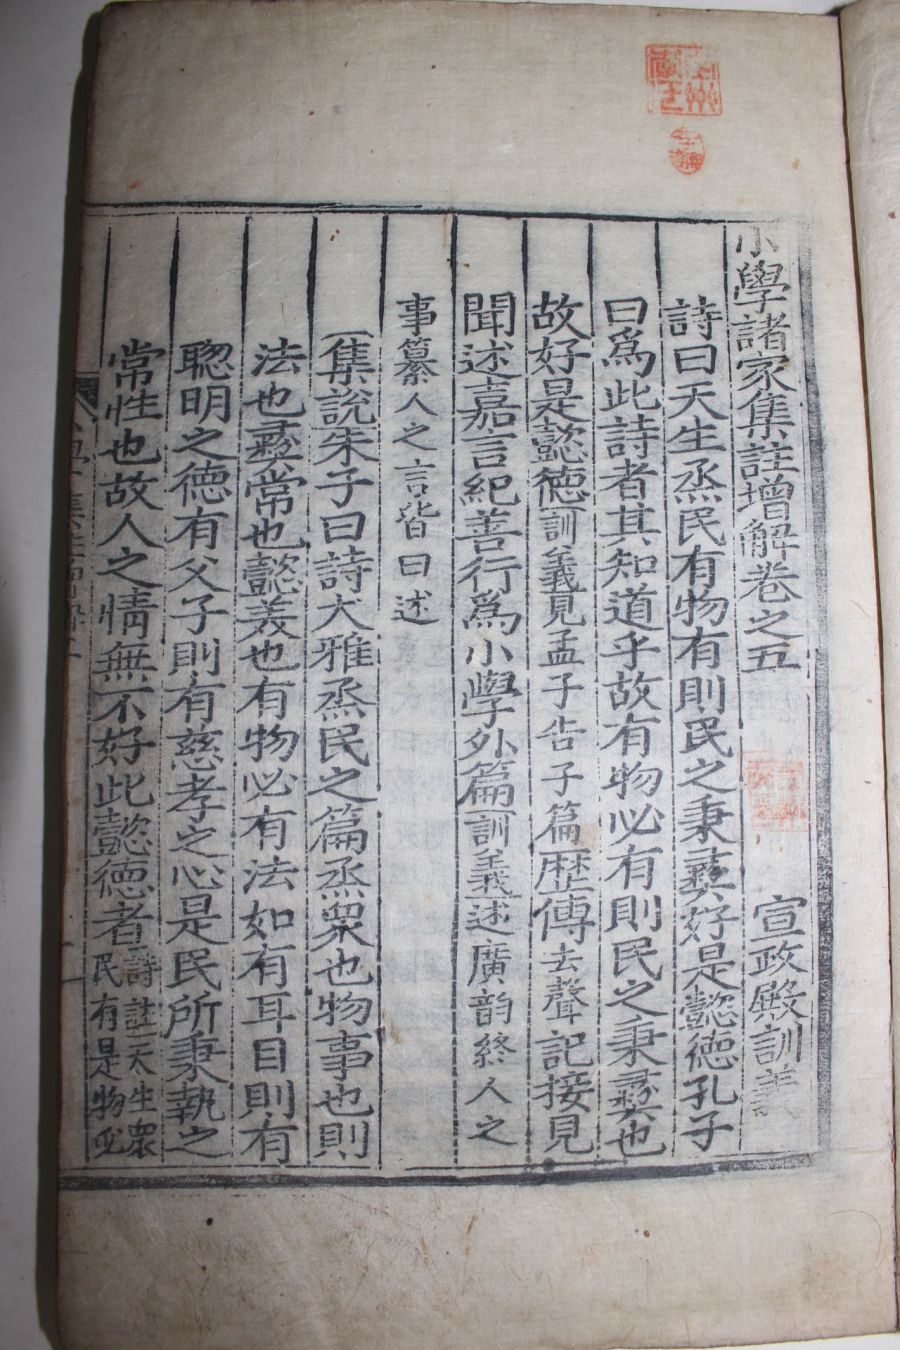 小學諸家集註增解卷之五 宣政殿訓義
詩曰天生烝民有物有則民之秉彝好是懿德孔子
曰爲此詩者其知道乎故有物必有則民之秉彝也
故好是懿德訓義見孟子告子篇歷傳去聲記接見
聞述嘉言紀善行爲小學外篇訓義述廣韵終人之
事纂人之言皆曰述
集說朱子曰詩大雅烝民之篇烝衆也物事也則
法也彝常也懿美也有物必有法如有耳目則有
聰明之德有父子則有慈孝之心是民所秉執之
常性也故人之情無不好此懿德者詩註天生衆民有是物必